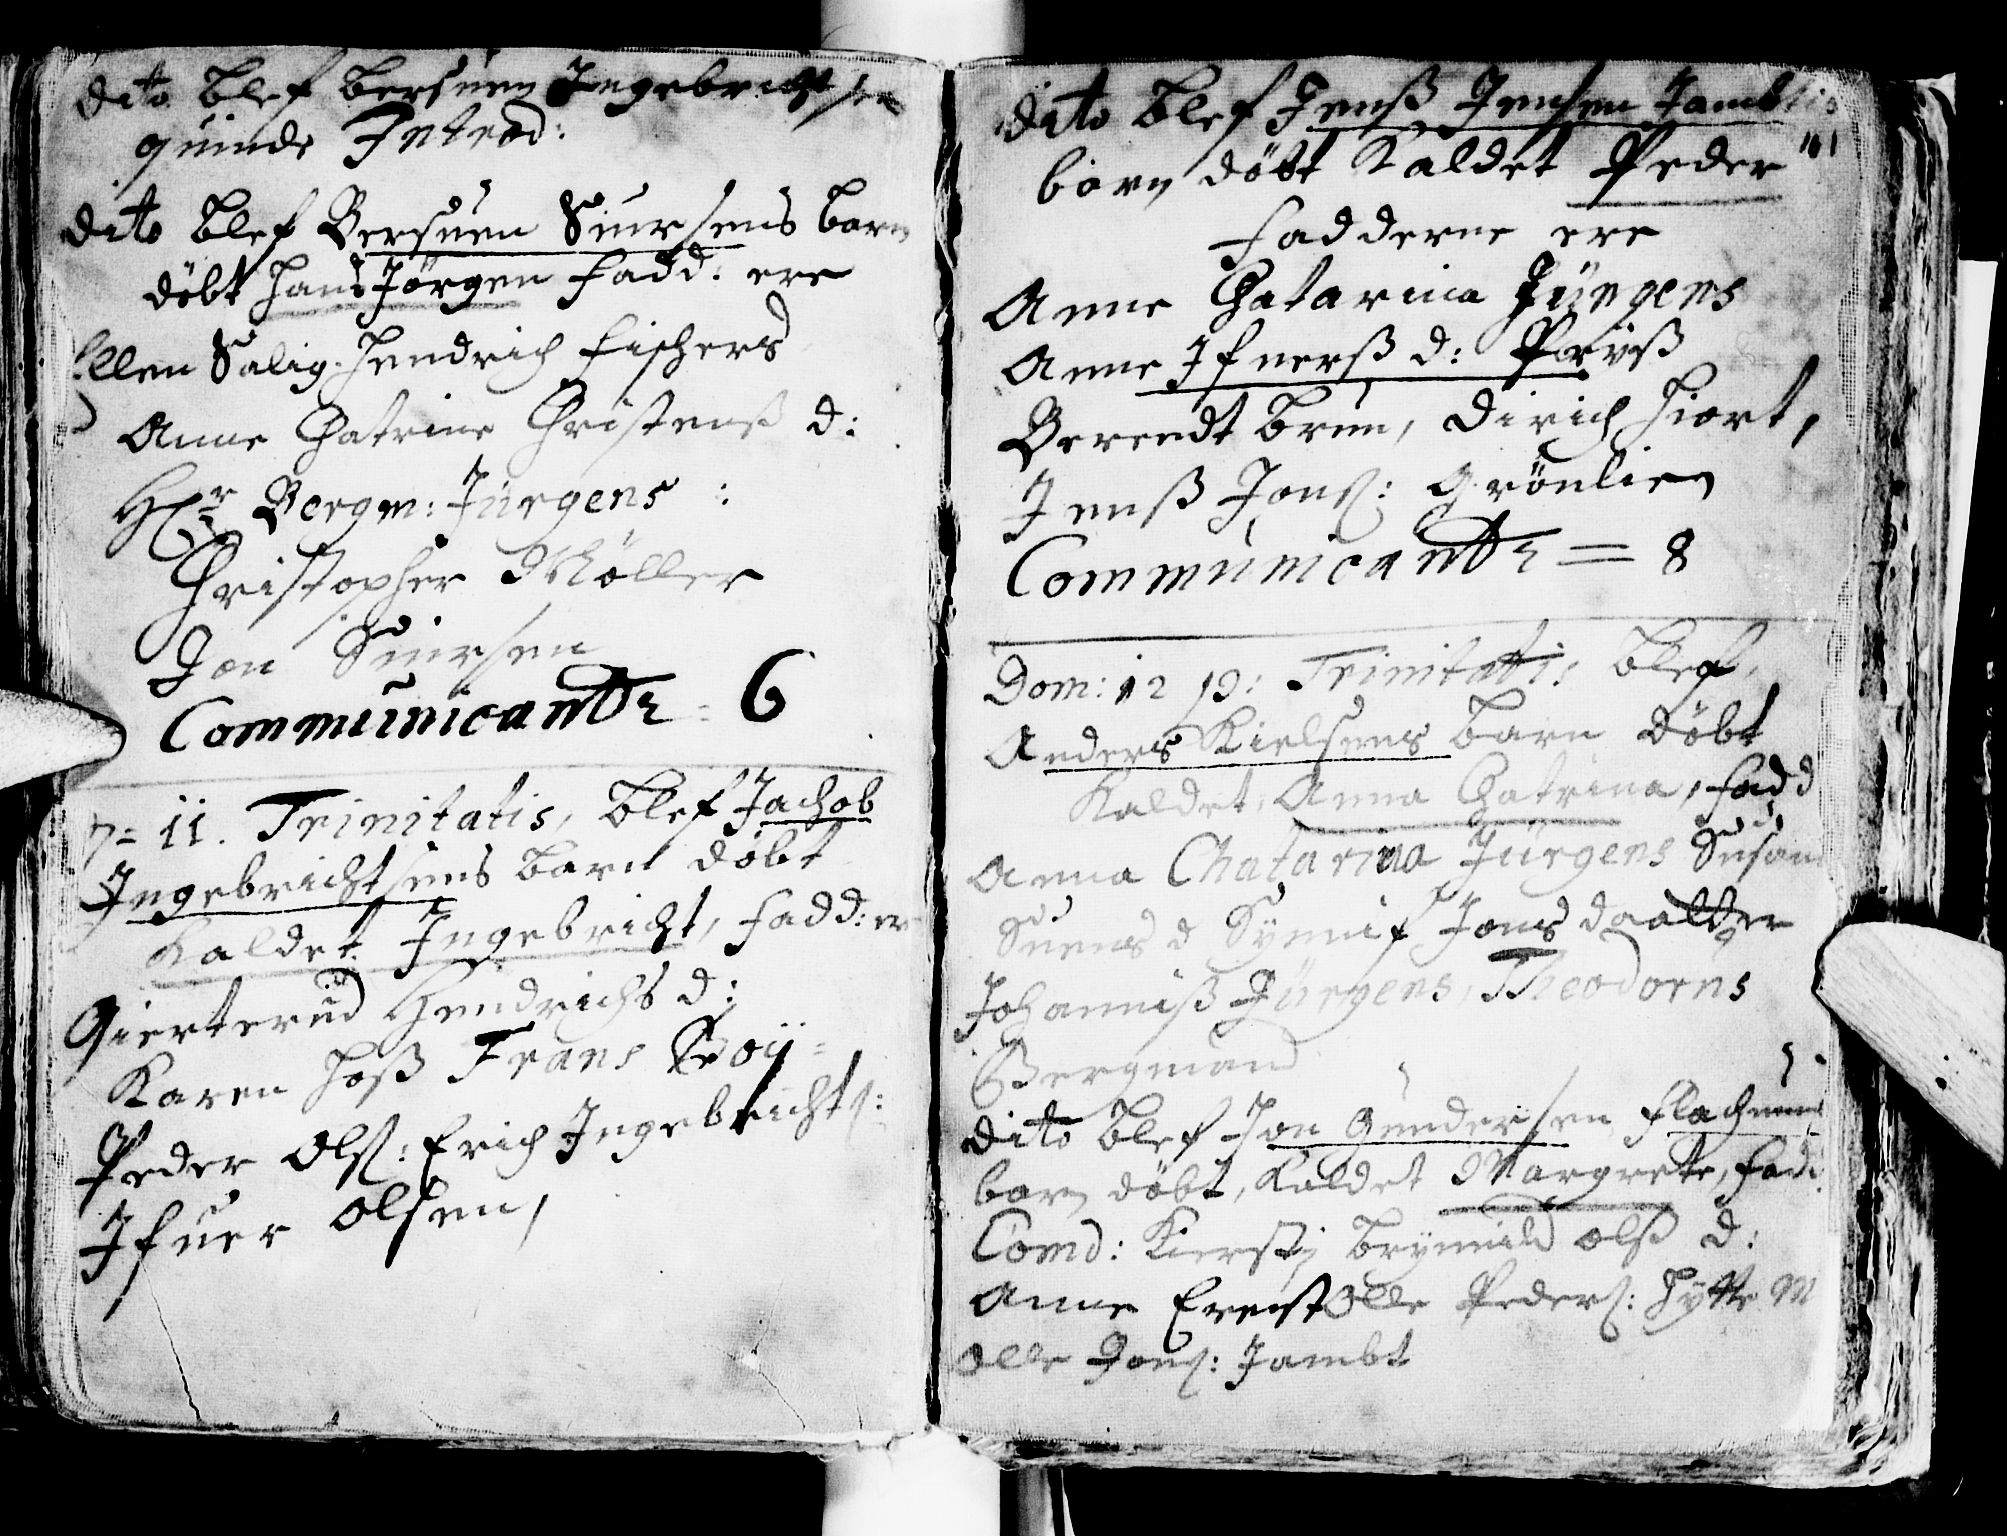 Dito blef Bersuen Ingebrichtsen
quinde Introd:
Dito blef Bersuen Siursens barn
döbt Hans Jörgen Fadd: ere
Ellen Salig. Hendrich Fischers
Anne Chatrine Christens d:
Hr Bergm: Jürgens :
Christopher Möller
Jon Siursen
Communicantr = 6
7= 11. Trinitatis, blef Jachob
Ingebrichtsens barn döbt
Kaldet Ingebricht, Fadd: er
Gierterud Hendrichs d:
Karen hoß Frans
Peder Olß: Erich Ingebrichtß:
Ifuer Olsen,
Dito blef Jenß Jensen Jambt
barn döbt Kaldet Peder
Fadderne ere
Anne Chatarina Jürgens
Anne Ifuerß d:
Berendt Brun, Dirich Hiort,
Jenß Jonß: Grönlien
Communicantr = 8
Dom: 12 p: Trinitatis blef
Anders Kielsens barn döbt
Kaldet, Anna Chatrina, Fadd
Anna Chatarina Jürgens Susan
Suens d Synnif Jons daatter
Johanniß Jürgens, Theodorus
Bergmand
Dito blef Jon Gundersen
barn döbt, Kaldet Margrete, Fadd
Comd: Kiersti Brynnild Olß d:
Anne Ernst Olle Pederß: Hytte M
Olle Jonß: Jambt